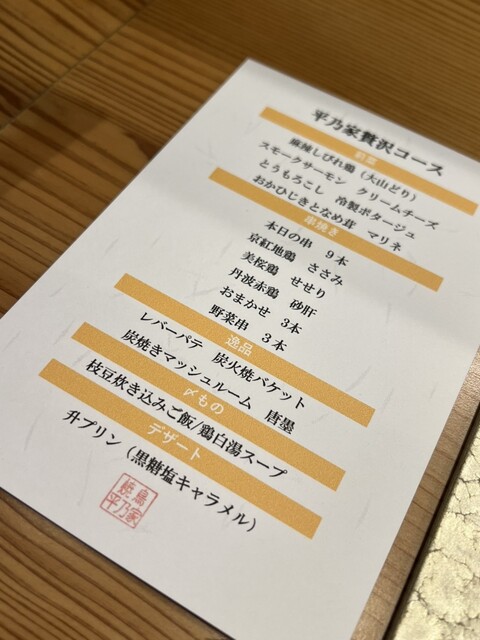 平乃家贅沢コース
前菜
麻辣しびれ鶏（大山どり）
スモークサーモン　クリームチーズ
とうもろこし　冷製ポタージュ
おかひじきとなめ茸　マリネ
串焼き
本日の串　9本
京紅地鶏　ささみ
美桜鶏　せせり
丹波赤鶏　砂肝
おまかせ　3本
野菜串　3本
逸品
レバーパテ　炭火焼バケット
炭焼きマッシュルーム　唐墨
〆もの
枝豆炊き込みご飯/鶏白湯スープ
デザート
升プリン（黒糖塩キャラメル）
焼鳥
平乃家